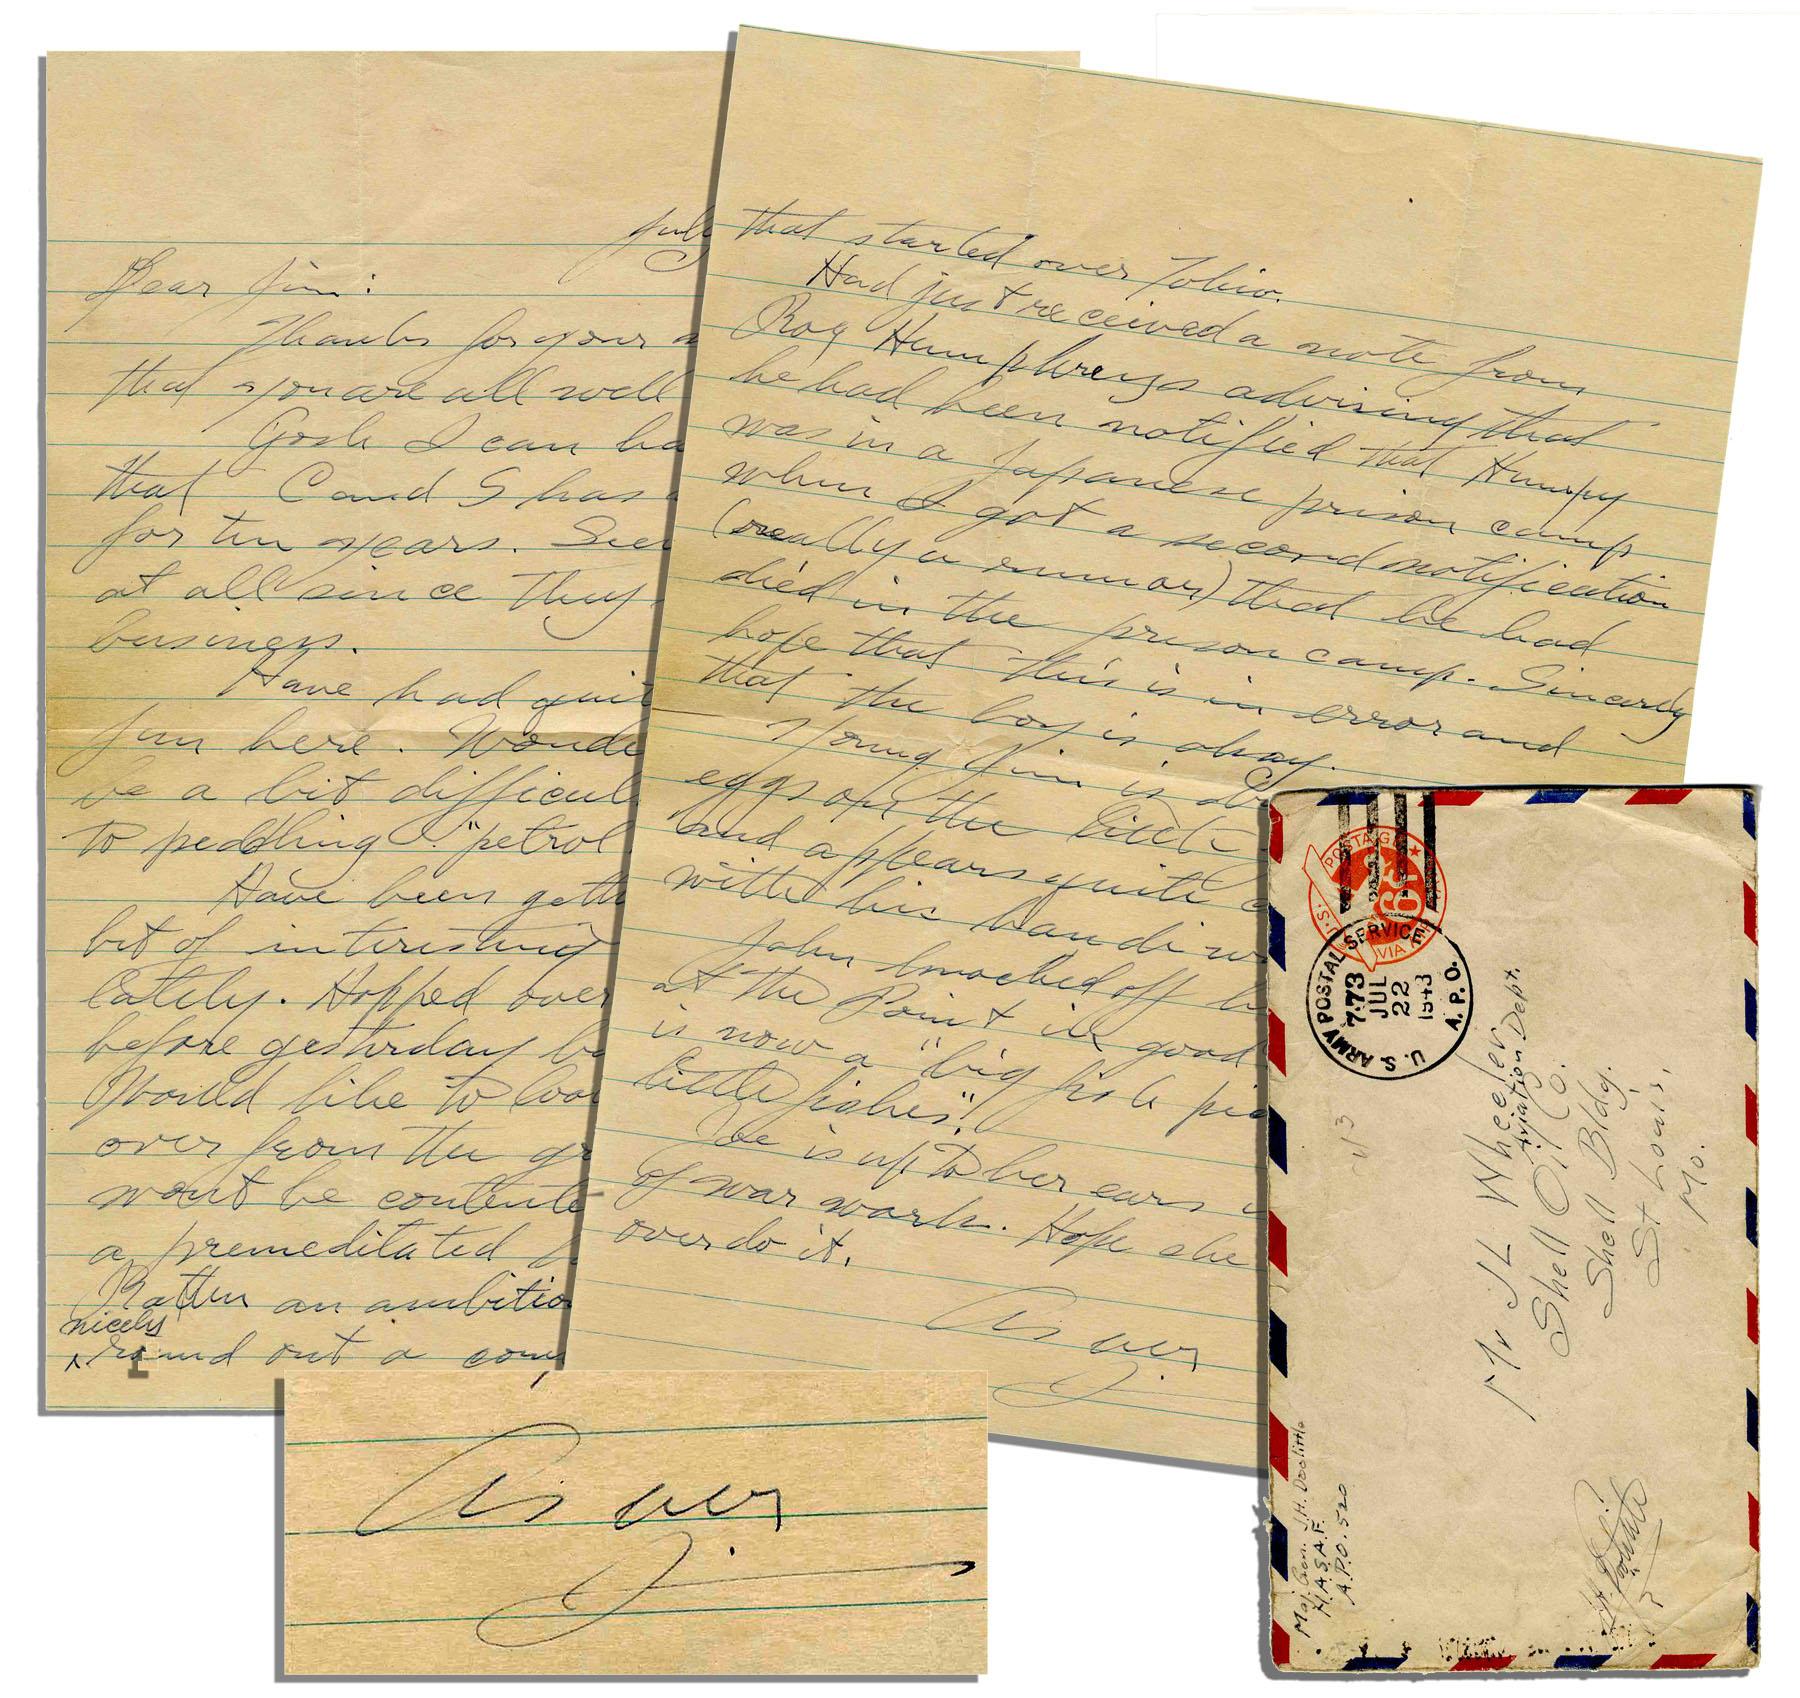 July
Dear Jim:
Thanks for your
that you are all well
Gosh I can ha
that C and S has
for ten years. See
at all since they
business.
Have had quit
fun here. Wonde
be a bit difficul
to peddling "petrol
Have been gett
bit of interesting
lately. Hopped over
before yesterday b
Would like to loo
over from the gr
wont be contente
a premeditated
Rather an ambitio
nicely
^ round out a com
that started over Tokio.
Had just received a note from
Roy Humphreys advising that
he had been notified that Humpy
was in a Japanese prison camp
when I got a second notification
(really a rumor) that he had
died in the prison camp. Sincerly
hope that this is in error and
that the boy is okay.
Young Jim is
eggs on the little
and appears quite
with his handiw
John knocked off h
at the Point in good
is now a "big fish
little fishes".
Joe is up to her ears
of war work. Hope she
overdo it.
As ever
J.
As ever
J.
U.S. POSTAGE
VIA AIR
U.S. ARMY POSTAL SERVICE
773
JUL
22
1943
A.P.O.
Mr JL Wheeler
Aviation Dept.
Shell Oil Co.
Shell Bldg.
St Louis,
Mo.
Maj. Gen. J.H. Doolittle
A.P.O. 520